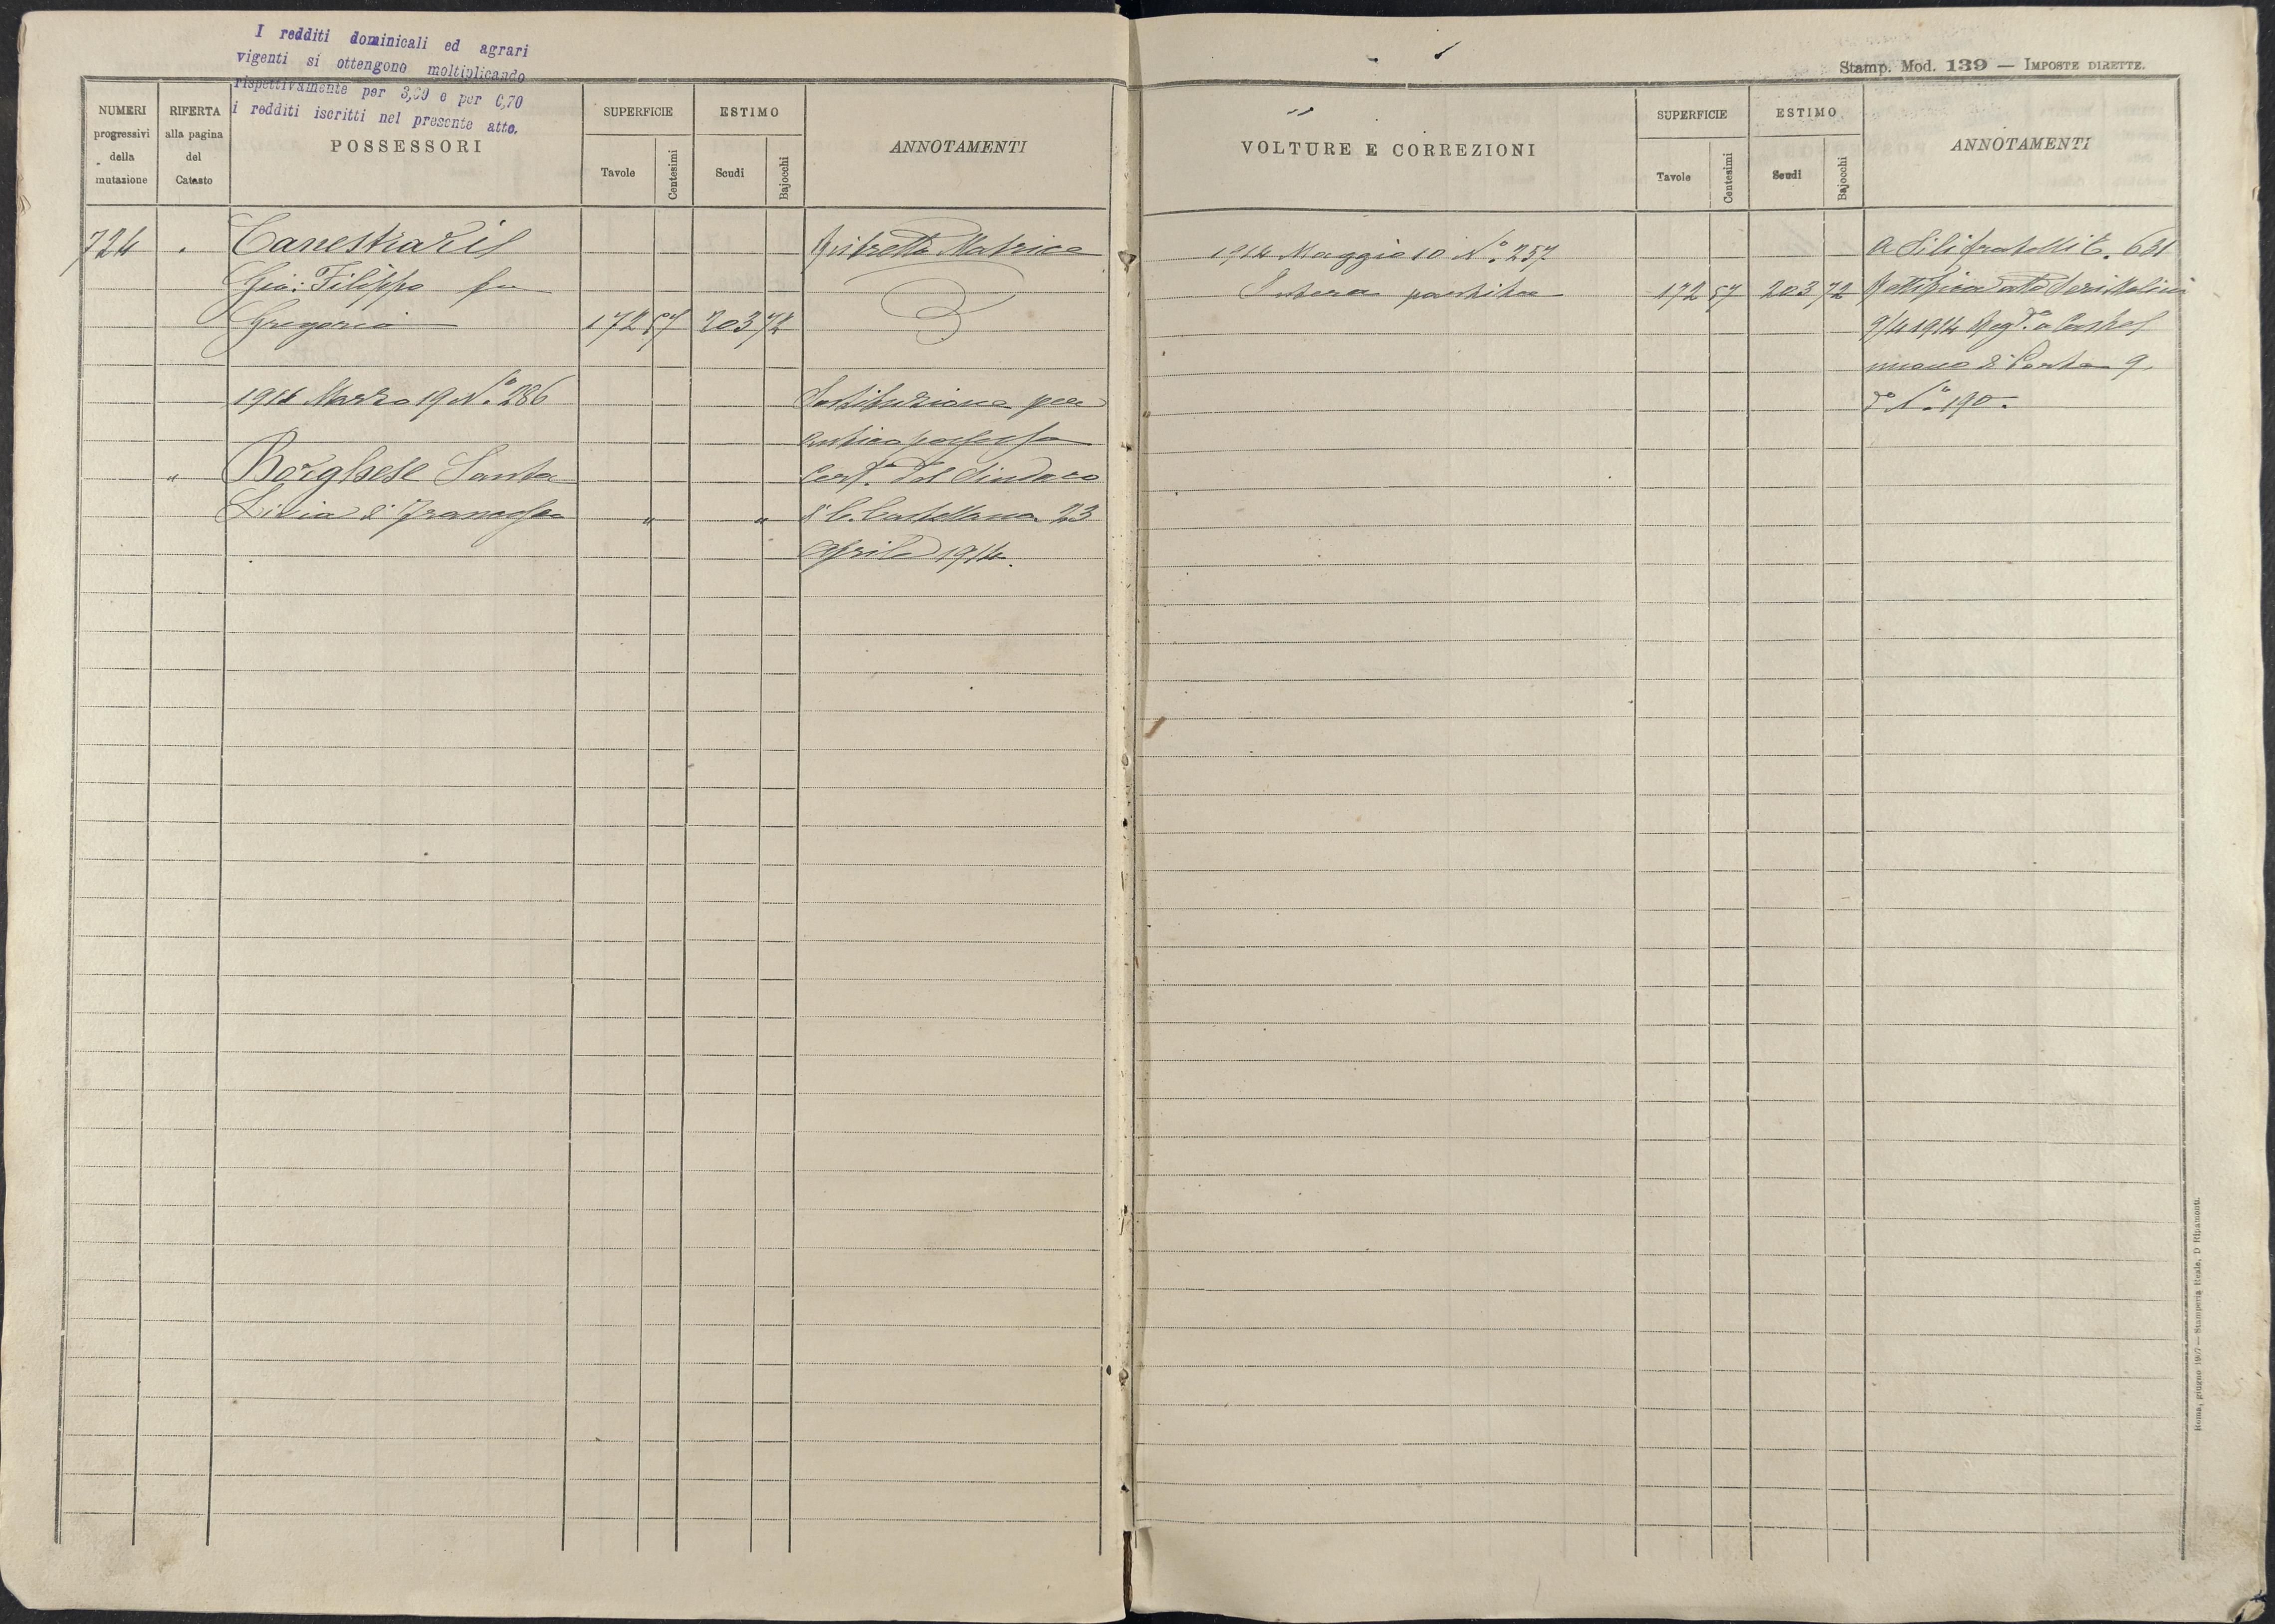 I redditi dominicali ed agrari
vigenti si ottengono moltiplicando
rispettivamente per 3,00 e per 0,70
i redditi iscritti nel presente atto.
NUMERI progressivi della mutazione
RIFERTA alla pagina del Catasto
POSSESSORI
SUPERFICIE
Tavole
Centesimi
ESTIMO
Scudi
Bajocchi
ANNOTAMENTI
724 Canestrari
Gio: Filippo fu
Gregorio 172 57 203 72
Matrice
1914 Marzo 19 N.° 286
Sostituzione per
antico possesso
" Borghese Santa
Cert.° del Sindaco
Livia di Francesco " "
di C. Castellana 23
Aprile 1914.
Stamp. Mod. 139 — IMPOSTE DIRETTE.
VOLTURE E CORREZIONI
SUPERFICIE
Tavole
Centesimi
ESTIMO
Scudi
Bajocchi
ANNOTAMENTI
1914 Maggio 10 N.° 257
a Sili fratelli C. 631
Intera partita 172 57 203 72
Rettifica atto
9/4 1914 Reg.° a Castel
nuovo di Porto 9
d.° N.° 190.
Roma, giugno 1907 — Stamperia Reale, D Ripamonti.